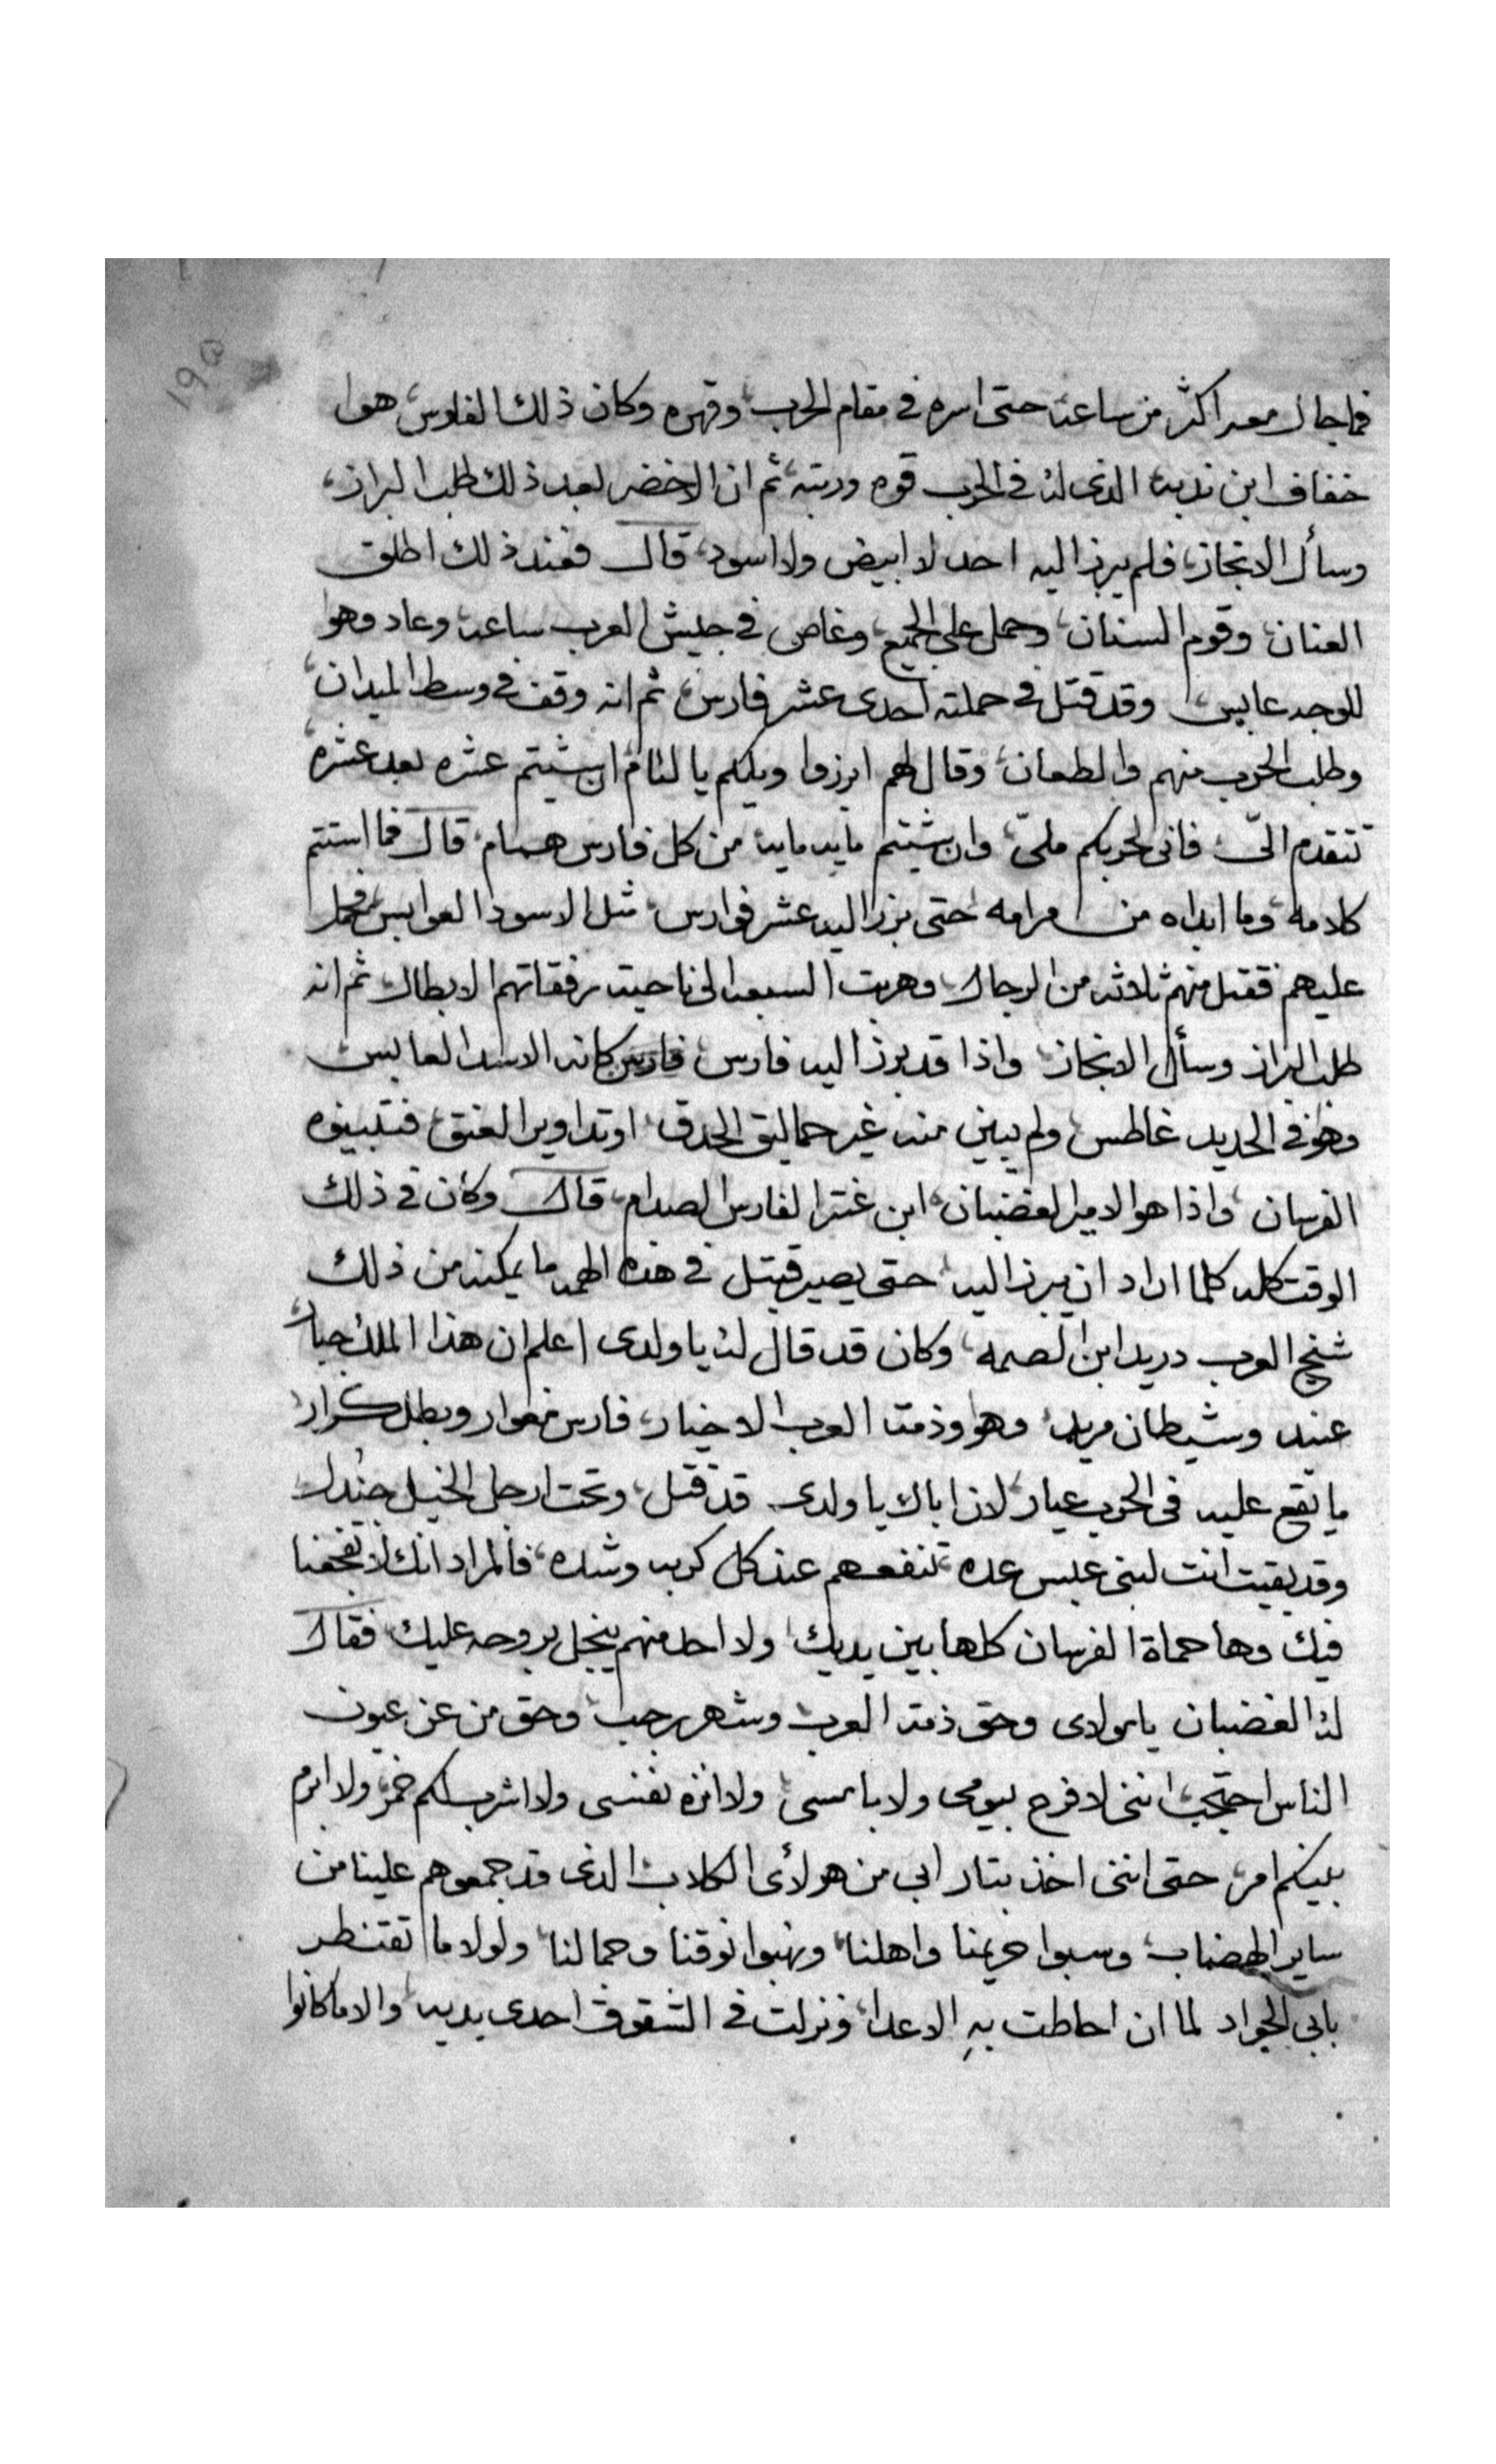 ١٩٥
فما جال معه اكثر من ساعة حتى اسره في مقام الحرب وقهره وكان ذلك الفارس هوا
خفاف ابن ندبه الذى له في الحرب قوه ودربه ثم ان الاخضر بعد ذلك طلب البراز
وسأل الانجاز فلم يبرز اليه احد لا ابيض ولا اسود قال فعند ذلك اطلق
العنان وقوم السنان وحمل على الجميع وغاص في جيش العرب ساعة وعاد وهوا
للوجه عابس وقد قتل في حملته احدى عشر فارس ثم انه وقف في وسط الميدان
وطلب الحرب منهم والطعان وقال لهم ابرزوا ويلكم يا لئام ان شيتم عشره بعد عشره
تتقدم الىّ فانى لحربكم ملىّ وان شيتم مايه مايه من كل فارس همام قال فما استتم
كلامه وما ابداه من مرامه حتى برز اليه عشر فوارس مثل الاسود العوابس فحمل
عليهم فقتل منهم ثلاثه من الرجال وهربت السبعه الى ناحية رفقاتهم الابطال ثم انه
طلب البراز وسأل الانجاز واذا قد برز اليه فارس فارس كانه الاسد العابس
وهو في الحديد غاطس ولم يبين منه غير حماليق الحدق او تداوير العنق فتبينوه
الفرسان واذا هو الامير الغضبان ابن عنتر الفارس الصدام قال وكان في ذلك
الوقت كله كلما اراد ان يبرز اليه حتى يصير قتيل في هذه المهمه ما يمكنه من ذلك
شيخ العرب دريد ابن الصمه وكان قد قال له يا ولدى اعلم ان هذا الملك جبار
عنيد وشيطان مريد وهو وذمة العرب الاخيار فارس مغوار وبطل كرار
ما يقع عليه في الحرب عيار لان اباك يا ولدى قد قتل وتحت ارجل الخيل جندل
وقد بقيت انت لبنى عبس عده تنفعهم عند كل كرب وشده فالمراد انك لا تفجعنا
فيك وها حماة الفرسان كلها بين يديك ولا احد منهم يبخل بروحه عليك فقال
له الغضبان يا مولاى وحق ذمة العرب وشهر رجب وحق من عن عيون
الناس احتجب اننى لا فرح بيومى ولا بامسى ولا انزه نفسى ولا اشرب لكم خمر ولا ابرم
بينكم امر حتى اننى اخذ بتار ابى من هولأى الكلاب الذى قد جمعوهم علينا من
ساير الهضاب وسبوا حريمنا واهلنا ونهبوا نوقنا وجمالنا ولولا ما تقنطر
بابى الجواد لما ان احاطت بهِ الاعدا ونزلت في الشقوق احدى يديه والا ما كانوا